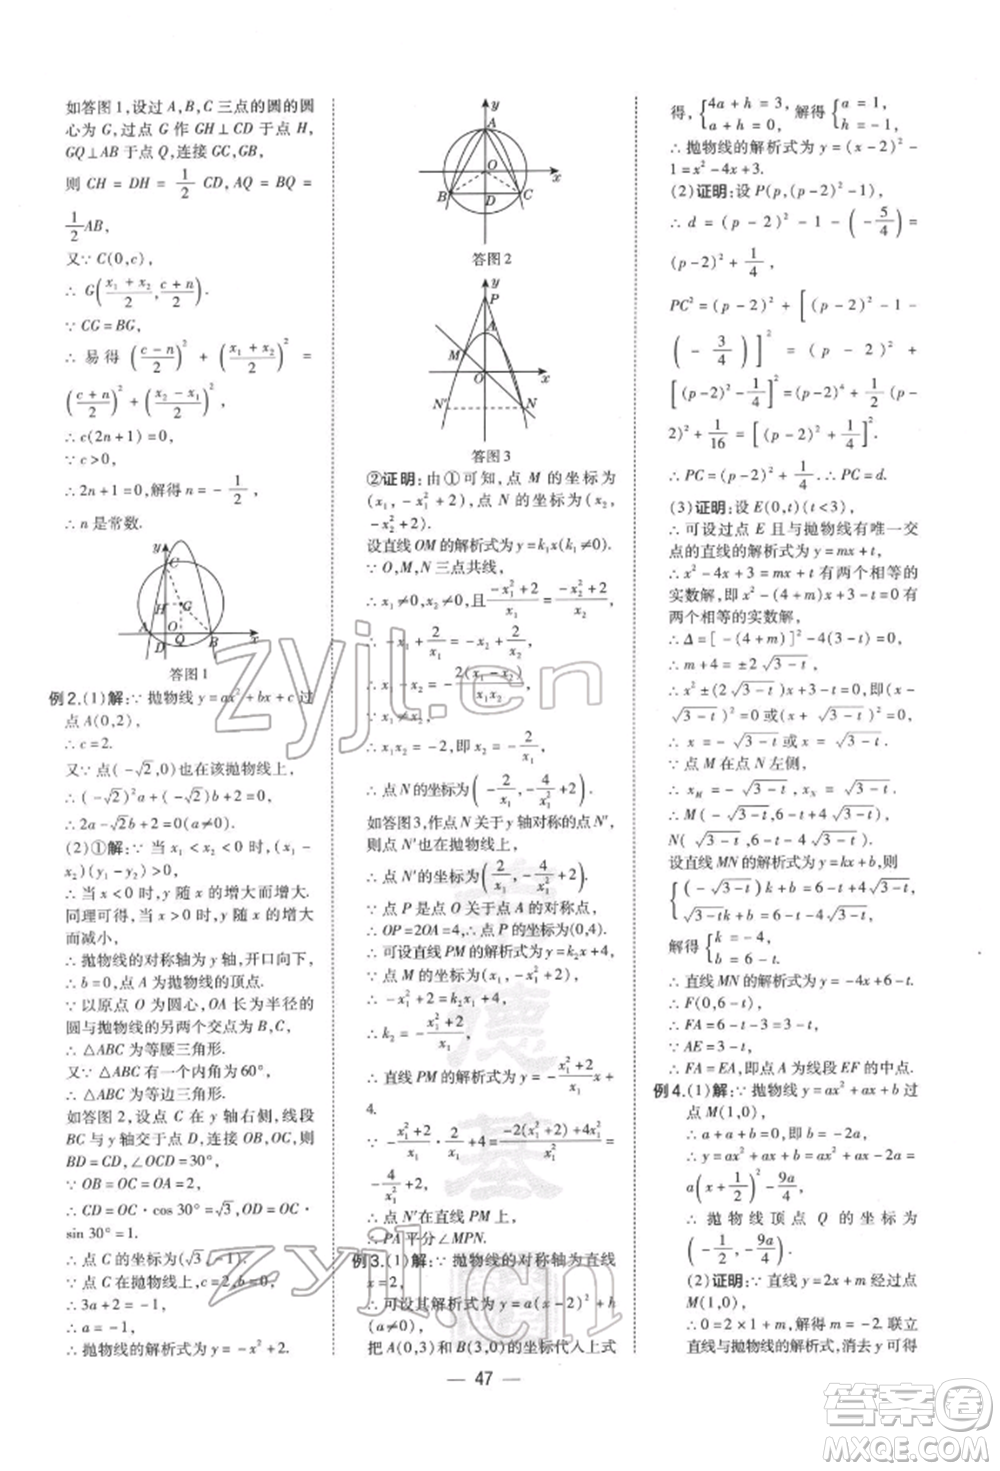 如答图1,设过A,B,C三点的圆的圆
心为G,过点G作GH⊥CD于点H,
GQ⊥AB于点Q,连接GC,GB,
则CH=DH=1/2 CD,AQ=BQ=
1/2 AB,
又∵C(0,c),
∴G((x₁+x₂)/2,(c+n)/2).
∵CG=BG,
∴易得((c-n)/2)²+((x₁+x₂)/2)²=
((c+n)/2)²+((x₂-x₁)/2)²,
∴c(2n+1)=0,
∵c>0,
∴2n+1=0,解得n=-1/2,
∴n是常数.
y
C
H
G
A
O
D
Q
B
x
答图1
例2.(1)解:∵抛物线y=ax²+bx+c过
点A(0,2),
∴c=2.
又∵点(-√2,0)也在该抛物线上,
∴(-√2)²a+(-√2)b+c=0,
∴2a-√2b+2=0(a≠0).
(2)①解:∵当x₁<x₂<0时,(x₁-
x₂)(y₁-y₂)>0,
∴当x<0时,y随x的增大而增大.
同理可得,当x>0时,y随x的增大
而减小,
∴抛物线的对称轴为y轴,开口向下,
∴b=0,点A为抛物线的顶点.
∵以原点O为圆心,OA长为半径的
圆与抛物线的另两个交点为B,C,
∴△ABC为等腰三角形.
又∵△ABC有一个内角为60°,
∴△ABC为等边三角形.
如答图2,设点C在y轴右侧,线段
BC与y轴交于点D,连接OB,OC,则
BD=CD,∠OCD=30°,
∵OB=OC=OA=2,
∴CD=OC·cos 30°=√3,OD=OC·
sin 30°=1.
∴点C的坐标为(√3,-1).
∵点C在抛物线上,c=2,b=0,
∴3a+2=-1,
∴a=-1,
∴抛物线的解析式为y=-x²+2.
y
A
O
x
B
D
C
答图2
y
P
A
M
O
x
N′
N
答图3
②证明:由①可知,点M的坐标为
(x₁,-x₁²+2),点N的坐标为(x₂,
-x₂²+2).
设直线OM的解析式为y=k₁x(k₁≠0).
∵O,M,N三点共线,
∴x₁≠0,x₂≠0,且(-x₁²+2)/x₁=(-x₂²+2)/x₂,
∴-x₁+2/x₁=-x₂+2/x₂,
∴x₁-x₂=-2(x₁-x₂)/(x₁x₂),
∴x₁x₂=-2,即x₂=-2/x₁,
∴点N的坐标为(-2/x₁,-4/x₁²+2).
如答图3,作点N关于y轴对称的点N′,
则点N′也在抛物线上,
∴点N′的坐标为(2/x₁,-4/x₁²+2).
∵点P是点O关于点A的对称点,
∴OP=2OA=4,∴点P的坐标为(0,4).
∴可设直线PM的解析式为y=k₂x+4.
∵点M的坐标为(x₁,-x₁²+2),
∴-x₁²+2=k₂x₁+4,
∴k₂=-(x₁²+2)/x₁,
∴直线PM的解析式为y=-(x₁²+2)/x₁ x+
4.
∵-(x₁²+2)/x₁·2/x₁+4=(-2(x₁²+2)+4x₁²)/x₁²=
-4/x₁²+2,
∴点N′在直线PM上,
∴PA平分∠MPN.
例3.(1)解:∵抛物线的对称轴为直线
x=2,
∴可设其解析式为y=a(x-2)²+h
(a≠0).
把A(0,3)和B(3,0)的坐标代入上式
得,{4a+h=3,a+h=0,解得{a=1,h=-1,
∴抛物线的解析式为y=(x-2)²-
1=x²-4x+3.
(2)证明:设P(p,(p-2)²-1),
∴d=(p-2)²-1-(-5/4)=
(p-2)²+1/4,
PC²=(p-2)²+[(p-2)²-1-
(-3/4)]²=(p-2)²+
[(p-2)²-1/4]²=(p-2)⁴+1/2(p-
2)²+1/16=[(p-2)²+1/4]²,
∴PC=(p-2)²+1/4,∴PC=d.
(3)证明:设E(0,t)(t<3),
∴可设过点E且与抛物线有唯一交
点的直线的解析式为y=mx+t,
∴x²-4x+3=mx+t有两个相等的
实数解,即x²-(4+m)x+3-t=0有
两个相等的实数解,
∴Δ=[-(4+m)]²-4(3-t)=0,
∴m+4=±2√(3-t),
∴x²±(2√(3-t))x+3-t=0,即(x±
√(3-t))²=0(或分为)
∴x=-√(3-t)或x=√(3-t).
∵点M在点N左侧,
∴x_M=-√(3-t),x_N=√(3-t),
∴M(-√(3-t),6-t+4√(3-t)),
N(√(3-t),6-t-4√(3-t)).
设直线MN的解析式为y=kx+b,则
{-√(3-t)k+b=6-t+4√(3-t),
√(3-t)k+b=6-t-4√(3-t),
解得{k=-4,b=6-t.
∴直线MN的解析式为y=-4x+6-t,
∴F(0,6-t),
∴FA=6-t-3=3-t,
∵AE=3-t,
∴FA=EA,即点A为线段EF的中点.
例4.(1)解:∵抛物线y=ax²+ax+b过
点M(1,0),
∴a+a+b=0,即b=-2a,
∴y=ax²+ax+b=ax²+ax-2a=
a(x+1/2)²-9a/4,
∴抛物线顶点Q的坐标为
(-1/2,-9a/4).
(2)证明:∵直线y=2x+m经过点
M(1,0),
∴0=2×1+m,解得m=-2.联立
直线与抛物线的解析式,消去y可得
— 47 —
zyjl.cn
zyjl.cn
答案卷
MXQE.COM